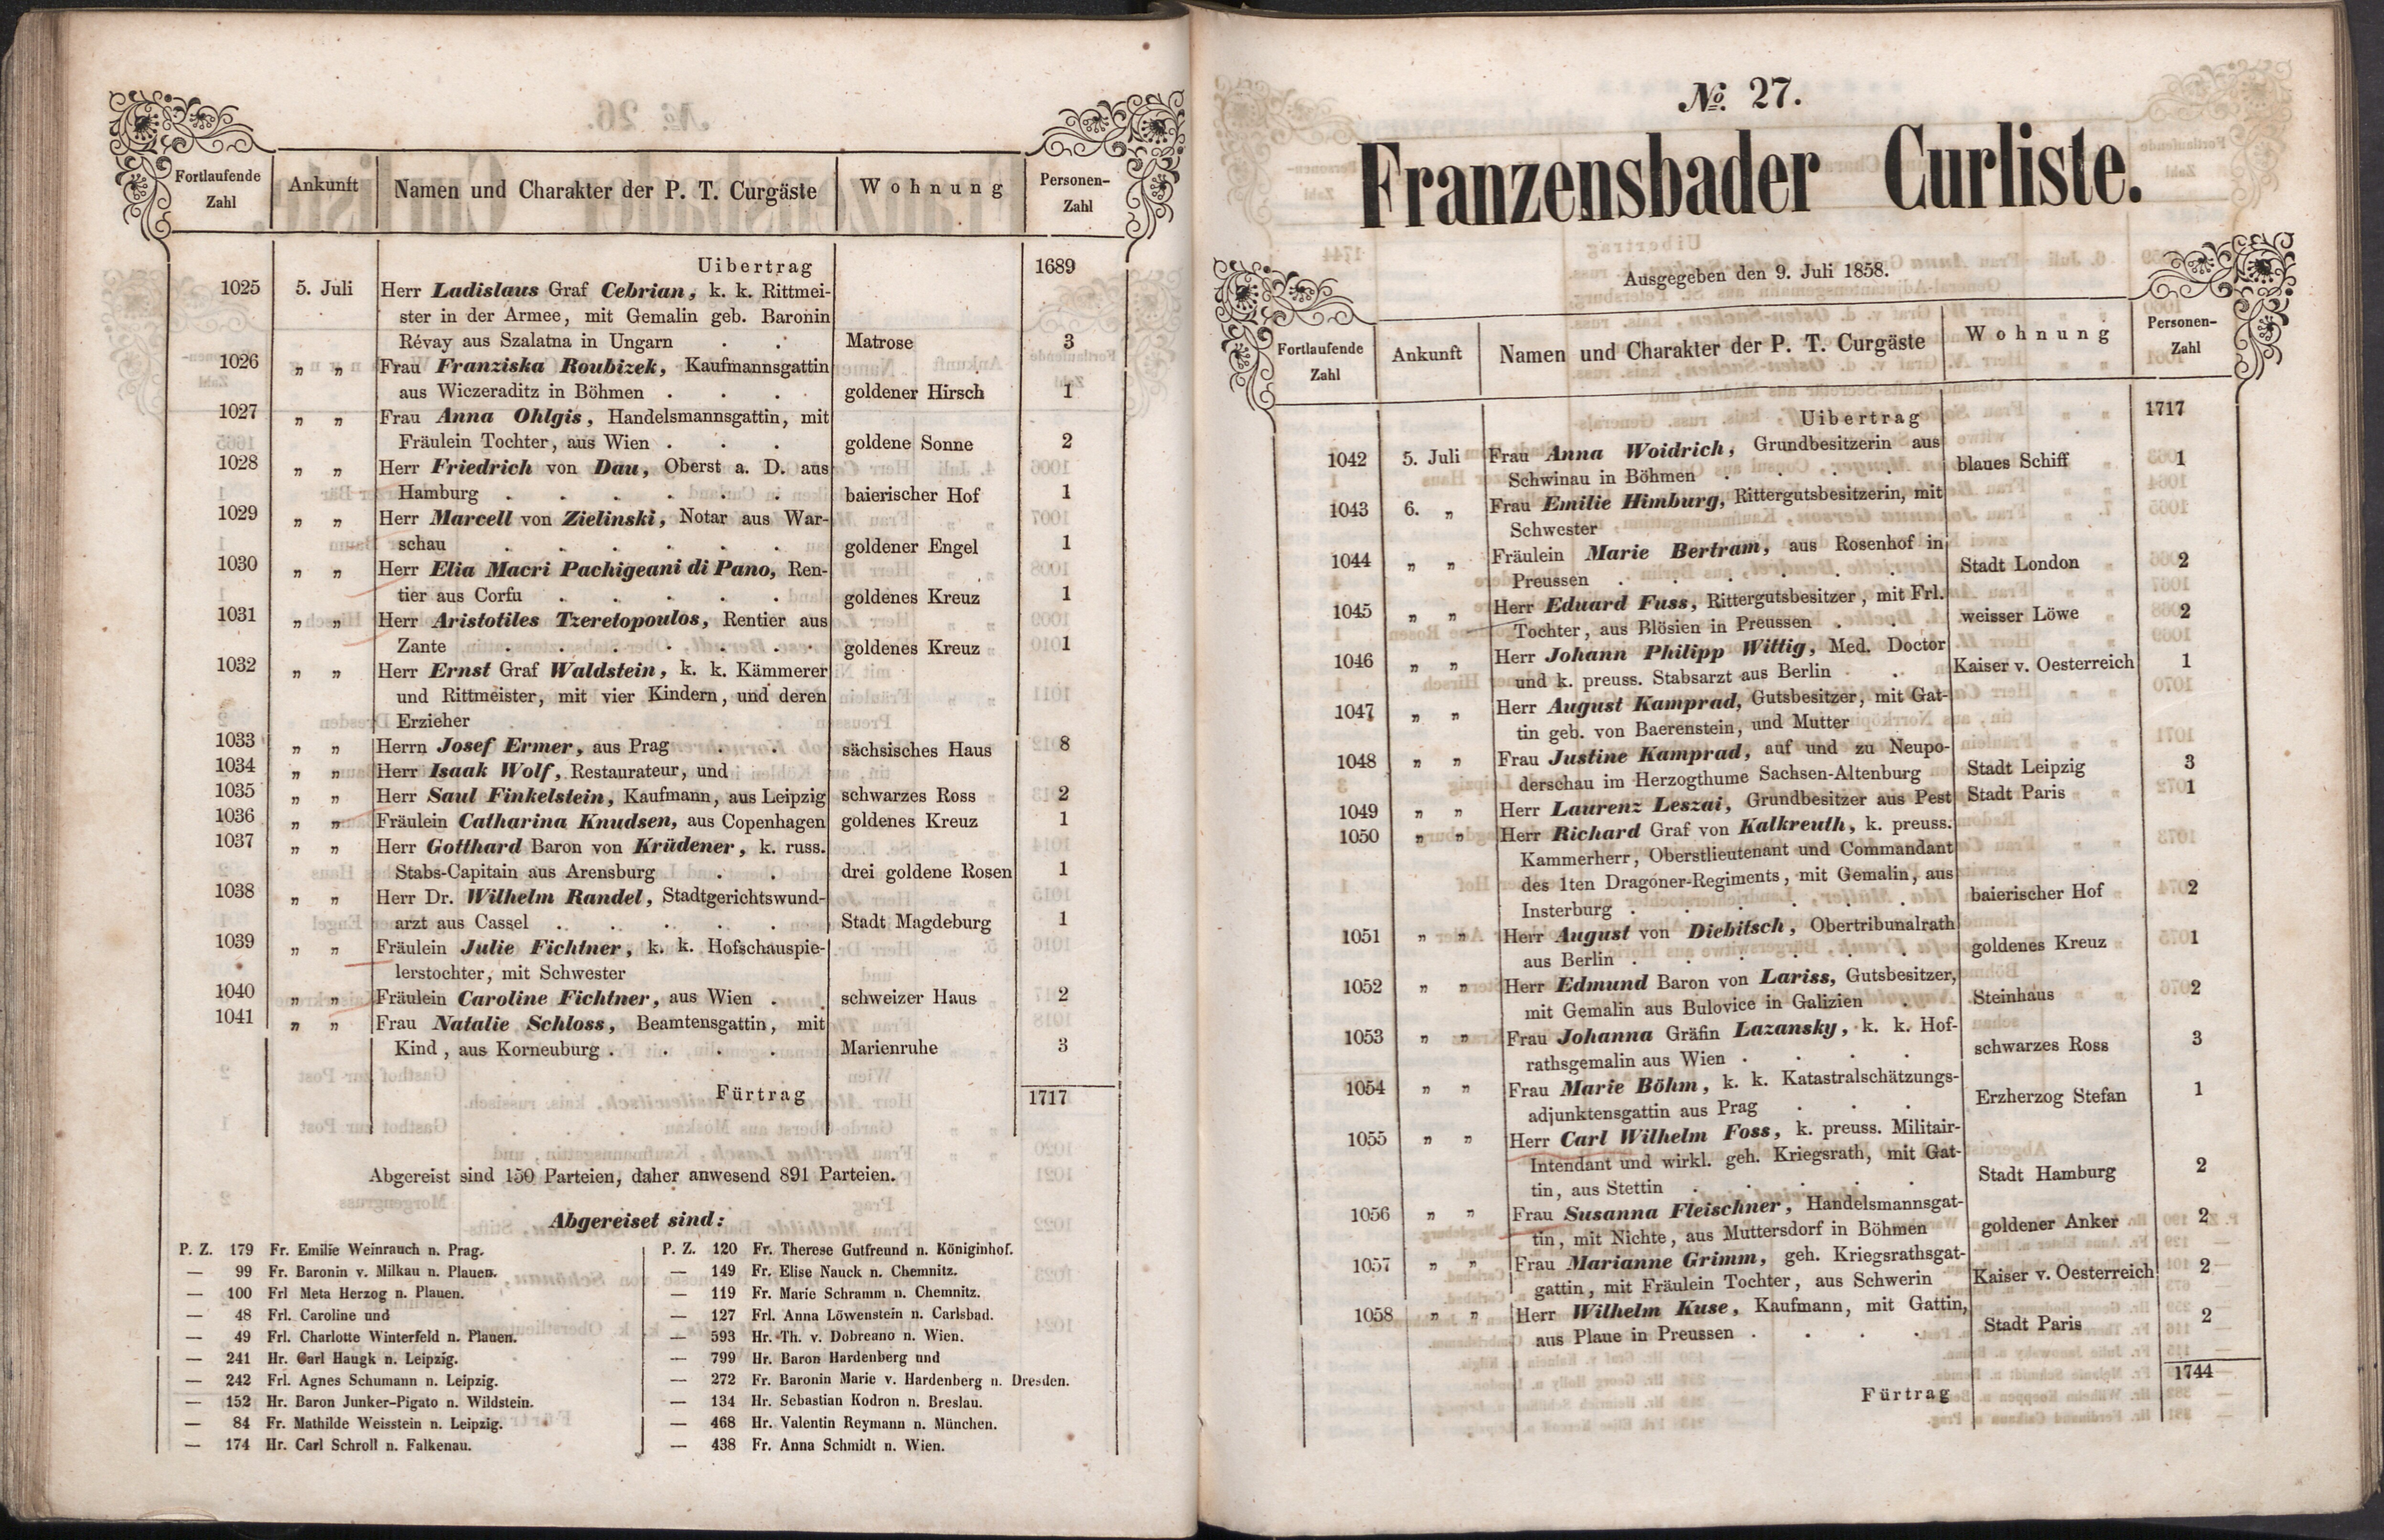 Fortlaufende Zahl Ankunft Namen und Charakter der P. T. Curgäste Wohnung Personen-Zahl
Uibertrag 1689
1025 5. Juli Herr Ladislaus Graf Cebrian, k. k. Rittmei-
ster in der Armee, mit Gemalin geb. Baronin
Révay aus Szalatna in Ungarn . . Matrose 3
1026 „ „ Frau Franziska Roubizek, Kaufmannsgattin
aus Wiczeraditz in Böhmen . . . goldener Hirsch 1
1027 „ „ Frau Anna Ohlgis, Handelsmannsgattin, mit
Fräulein Tochter, aus Wien . . . goldene Sonne 2
1028 „ „ Herr Friedrich von Dau, Oberst a. D. aus
Hamburg . . . . . . baierischer Hof 1
1029 „ „ Herr Marcell von Zielinski, Notar aus War-
schau . . . . . . goldener Engel 1
1030 „ „ Herr Elia Macri Pachigeani di Pano, Ren-
tier aus Corfu . . . . . goldenes Kreuz 1
1031 „ „ Herr Aristotiles Tzeretopoulos, Rentier aus
Zante . . . . . . . goldenes Kreuz 1
1032 „ „ Herr Ernst Graf Waldstein, k. k. Kämmerer
und Rittmeister, mit vier Kindern, und deren
Erzieher
1033 „ „ Herrn Josef Ermer, aus Prag . . sächsisches Haus 8
1034 „ „ Herr Isaak Wolf, Restaurateur, und
1035 „ „ Herr Saul Finkelstein, Kaufmann, aus Leipzig schwarzes Ross 2
1036 „ „ Fräulein Catharina Knudsen, aus Copenhagen goldenes Kreuz 1
1037 „ „ Herr Gotthard Baron von Krüdener, k. russ.
Stabs-Capitain aus Arensburg . . drei goldene Rosen 1
1038 „ „ Herr Dr. Wilhelm Randel, Stadtgerichtswund-
arzt aus Cassel . . . . . Stadt Magdeburg 1
1039 „ „ Fräulein Julie Fichtner, k. k. Hofschauspie-
lerstochter, mit Schwester
1040 „ „ Fräulein Caroline Fichtner, aus Wien . . schweizer Haus 2
1041 „ „ Frau Natalie Schloss, Beamtensgattin, mit
Kind, aus Korneuburg . . . . Marienruhe 3
Fürtrag 1717
Abgereist sind 150 Parteien, daher anwesend 891 Parteien.
Abgereiset sind:
P. Z. 179 Fr. Emilie Weinrauch n. Prag.
— 99 Fr. Baronin v. Milkau n. Plauen.
— 100 Frl Meta Herzog n. Plauen.
— 48 Frl. Caroline und
— 49 Frl. Charlotte Winterfeld n. Plauen.
— 241 Hr. Carl Haugk n. Leipzig.
— 242 Frl. Agnes Schumann n. Leipzig.
— 152 Hr. Baron Junker-Pigato n. Wildstein.
— 84 Fr. Mathilde Weisstein n. Leipzig.
— 174 Hr. Carl Schroll n. Falkenau.
P. Z. 120 Fr. Therese Gutfreund n. Königinhof.
— 149 Fr. Elise Nauck n. Chemnitz.
— 119 Fr. Marie Schramm n. Chemnitz.
— 127 Frl. Anna Löwenstein n. Carlsbad.
— 593 Hr. Th. v. Dobreano n. Wien.
— 799 Hr. Baron Hardenberg und
— 272 Fr. Baronin Marie v. Hardenberg n. Dresden.
— 134 Hr. Sebastian Kodron n. Breslau.
— 468 Hr. Valentin Reymann n. München.
— 438 Fr. Anna Schmidt n. Wien.
№ 27.
Franzensbader Curliste.
Ausgegeben den 9. Juli 1858.
Fortlaufende Zahl Ankunft Namen und Charakter der P. T. Curgäste Wohnung Personen-Zahl
Uibertrag 1717
1042 5. Juli Frau Anna Woidrich, Grundbesitzerin aus
Schwinau in Böhmen . . . . blaues Schiff 1
1043 6. „ Frau Emilie Himburg, Rittergutsbesitzerin, mit
Schwester
1044 „ „ Fräulein Marie Bertram, aus Rosenhof in
Preussen . . . . . . Stadt London 2
1045 „ „ Herr Eduard Fuss, Rittergutsbesitzer, mit Frl.
Tochter, aus Blösien in Preussen . . weisser Löwe 2
1046 „ „ Herr Johann Philipp Wittig, Med. Doctor
und k. preuss. Stabsarzt aus Berlin . . Kaiser v. Oesterreich 1
1047 „ „ Herr August Kamprad, Gutsbesitzer, mit Gat-
tin geb. von Baerenstein, und Mutter
1048 „ „ Frau Justine Kamprad, auf und zu Neupo-
derschau im Herzogthume Sachsen-Altenburg Stadt Leipzig 3
1049 „ „ Herr Laurenz Leszai, Grundbesitzer aus Pest Stadt Paris 1
1050 „ „ Herr Richard Graf von Kalkreuth, k. preuss.
Kammerherr, Oberstlieutenant und Commandant
des 1ten Dragoner-Regiments, mit Gemalin, aus
Insterburg . . . . . . baierischer Hof 2
1051 „ „ Herr August von Diebitsch, Obertribunalrath
aus Berlin . . . . . . goldenes Kreuz 1
1052 „ „ Herr Edmund Baron von Lariss, Gutsbesitzer,
mit Gemalin aus Bulovice in Galizien . Steinhaus 2
1053 „ „ Frau Johanna Gräfin Lazansky, k. k. Hof-
rathsgemalin aus Wien . . . . schwarzes Ross 3
1054 „ „ Frau Marie Böhm, k. k. Katastralschätzungs-
adjunktensgattin aus Prag . . . Erzherzog Stefan 1
1055 „ „ Herr Carl Wilhelm Foss, k. preuss. Militair-
Intendant und wirkl. geh. Kriegsrath, mit Gat-
tin, aus Stettin . . . . . Stadt Hamburg 2
1056 „ „ Frau Susanna Fleischner, Handelsmannsgat-
tin, mit Nichte, aus Muttersdorf in Böhmen goldener Anker 2
1057 „ „ Frau Marianne Grimm, geh. Kriegsrathsgat-
gattin, mit Fräulein Tochter, aus Schwerin Kaiser v. Oesterreich 2
1058 „ „ Herr Wilhelm Kuse, Kaufmann, mit Gattin,
aus Plaue in Preussen . . . . Stadt Paris 2
Fürtrag 1744